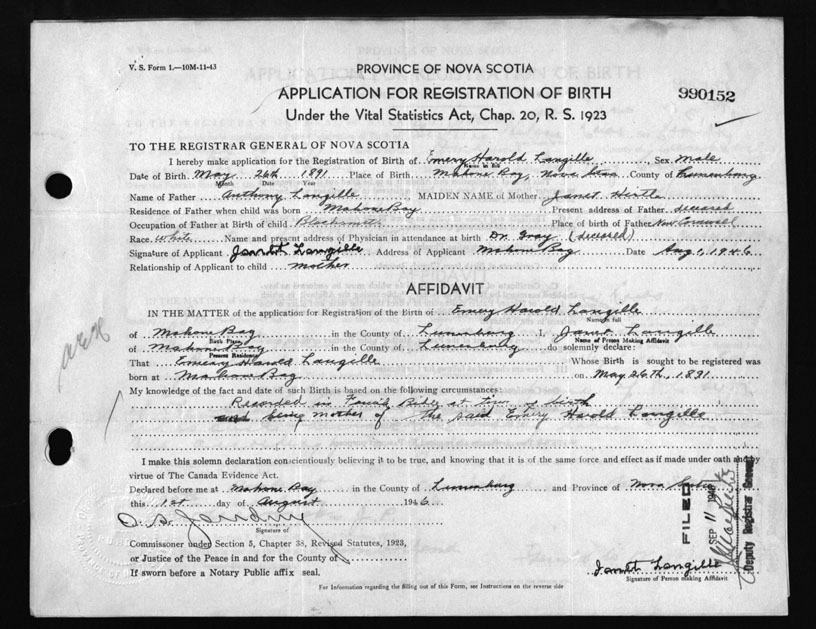 V. S. Form 1.—10M-11-43
PROVINCE OF NOVA SCOTIA
APPLICATION FOR REGISTRATION OF BIRTH
990152
Under the Vital Statistics Act, Chap. 20, R. S. 1923
TO THE REGISTRAR GENERAL OF NOVA SCOTIA
I hereby make application for the Registration of Birth of Emery Harold Langille, Sex Male
Name in full
Date of Birth May 26th 1891 Place of Birth Mahone Bay, Nova Scotia County of Lunenburg
Month Date Year
Name of Father Anthony Langille MAIDEN NAME of Mother Janet Hirtle
Residence of Father when child was born Mahone Bay Present address of Father deceased
Occupation of Father at Birth of child Blacksmith Place of birth of Father New Cornwall
Race White Name and present address of Physician in attendance at birth Dr. Gray (deceased)
Signature of Applicant Janet Langille Address of Applicant Mahone Bay Date Aug 1, 1946
Relationship of Applicant to child mother
AFFIDAVIT
IN THE MATTER of the application for Registration of the Birth of Emery Harold Langille
Name in full
of Mahone Bay in the County of Lunenburg I, Janet Langille
Birth Place Name of Person Making Affidavit
of Mahone Bay in the County of Lunenburg do solemnly declare:
Present Residence
That Emery Harold Langille Whose Birth is sought to be registered was
born at Mahone Bay on May 26th, 1891
My knowledge of the fact and date of such Birth is based on the following circumstances:
Recorded in Family Bible at time of birth
and being mother of the said Emery Harold Langille
I make this solemn declaration conscientiously believing it to be true, and knowing that it is of the same force and effect as if made under oath and by
virtue of The Canada Evidence Act.
Declared before me at Mahone Bay in the County of Lunenburg and Province of Nova Scotia
this 1st day of August 1946
Signature of
Commissioner under Section 5, Chapter 38, Revised Statutes, 1923,
or Justice of the Peace in and for the County of
If sworn before a Notary Public affix seal.
FILED
SEP 11 1946
Deputy Registrar General
Janet Langille
Signature of Person making Affidavit
For Information regarding the filling out of this Form, see Instructions on the reverse side